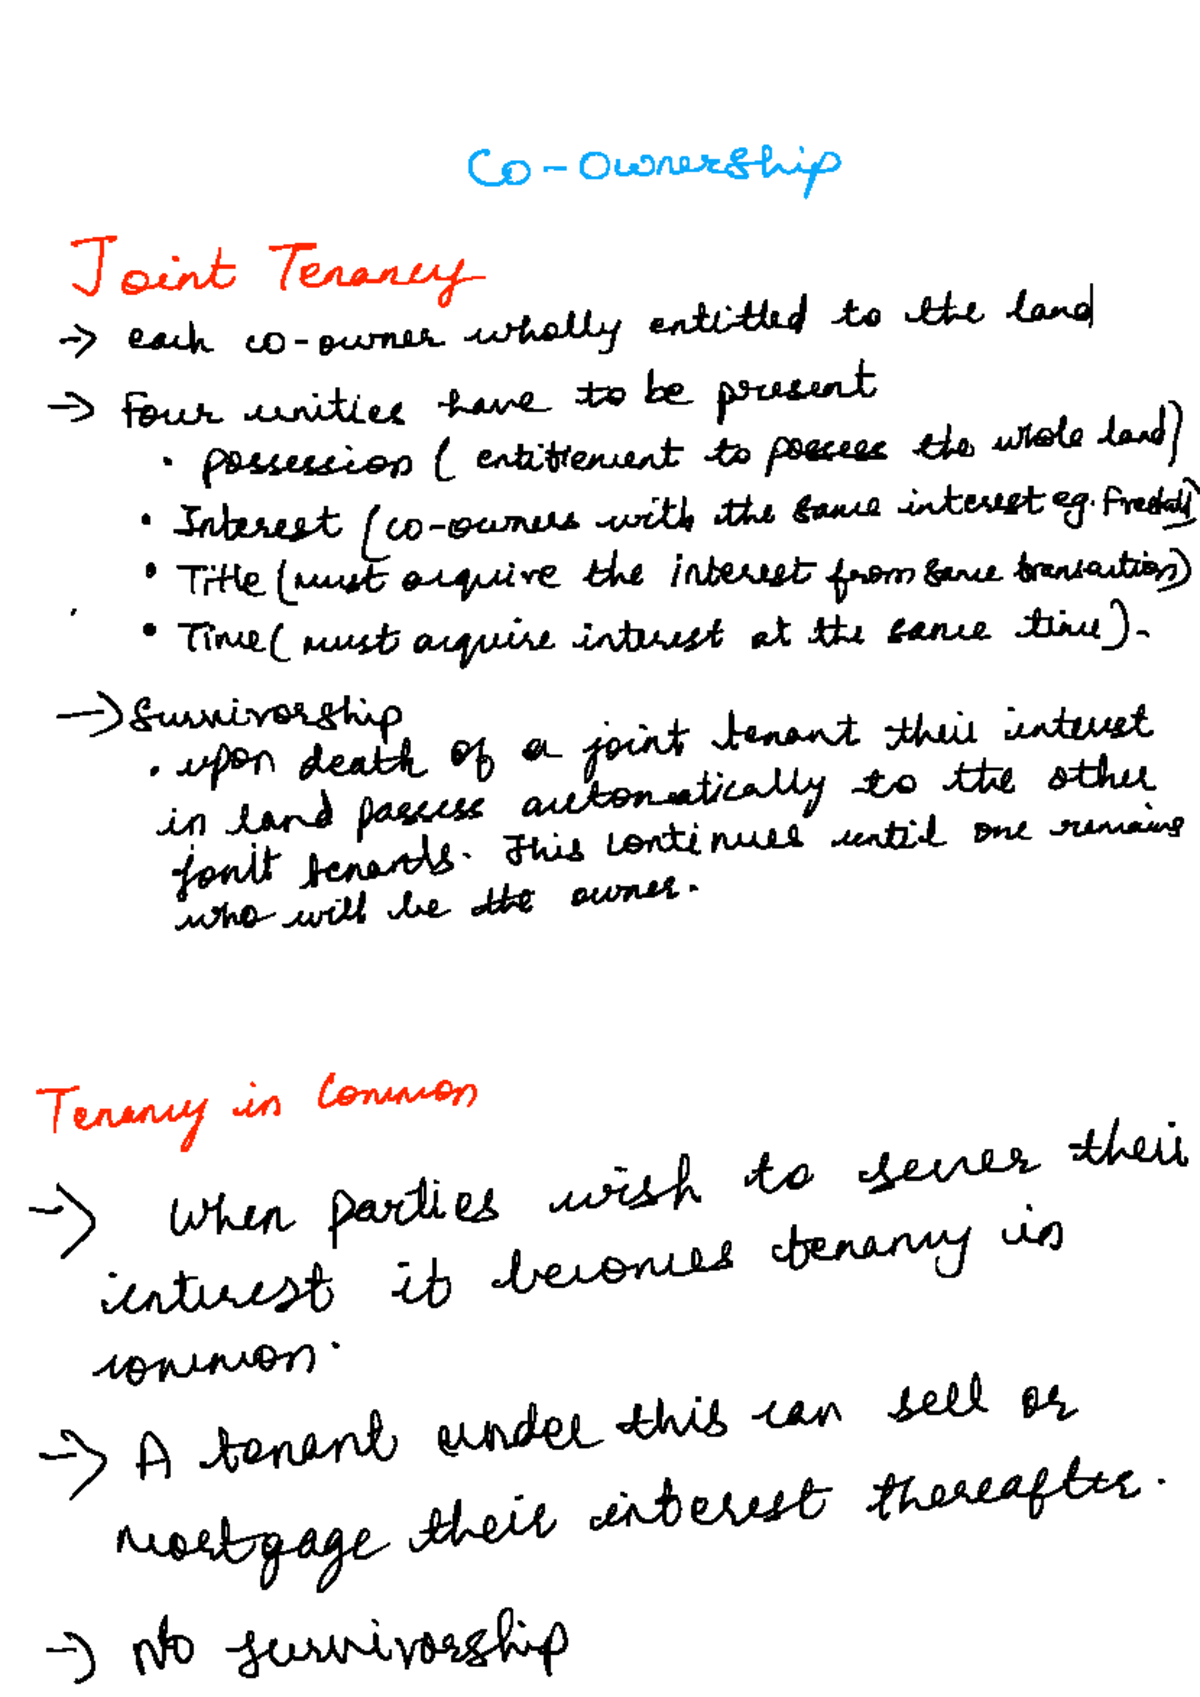 Co-Ownership
Joint Tenancy
→ each co-owner wholly entitled to the land
→ Four unities have to be present
• Possession (entitlement to possess the whole land)
• Interest (co-owners with the same interest eg. Freehold)
• Title (must acquire the interest from same transaction)
• Time (must acquire interest at the same time).
→ Survivorship
• upon death of a joint tenant their interest
in land passess automatically to the other
jonit tenants. This continues until one remains
who will be the owner.
Tenancy in Common
→ When parties wish to sever their
interest it becomes tenancy in
common.
→ A tenant under this can sell or
mortgage their interest thereafter.
→ No survivorship